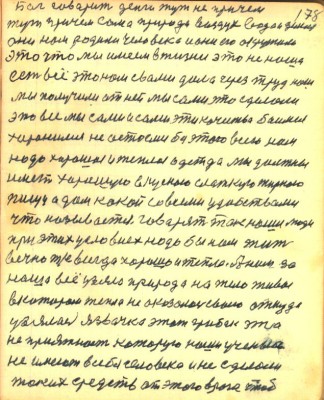 Бог говорит дети тут не причем 178
тут причем сама природа воздух вода земля
они нам родили человека и они его окружали
это что мы имеем в жизни это не наше
есть всё это нам с вами дала через труд наш
мы получили от неё мы сами это сделали
это все мы сами и сами эти качества
хоронимся не остосмы бу этого всего нам
надо хорошая и теплая одежда мы должны
иметь хорошую вкусную сладкую жирного
пищу а дом какой со всеми удобствами
что называется. говорят так наши люди
при этих условиях надо бы нам жить
вечно т же всегда хорошо и тепло. А нам за
наше всё взяла природа на тело живое
в котором тепла не оказалось откуда
взялась язвочка этот грибок эта
не приятность которую наши ученые
не имеют в себе человека и не сделали
таких средств от этого врага чтоб